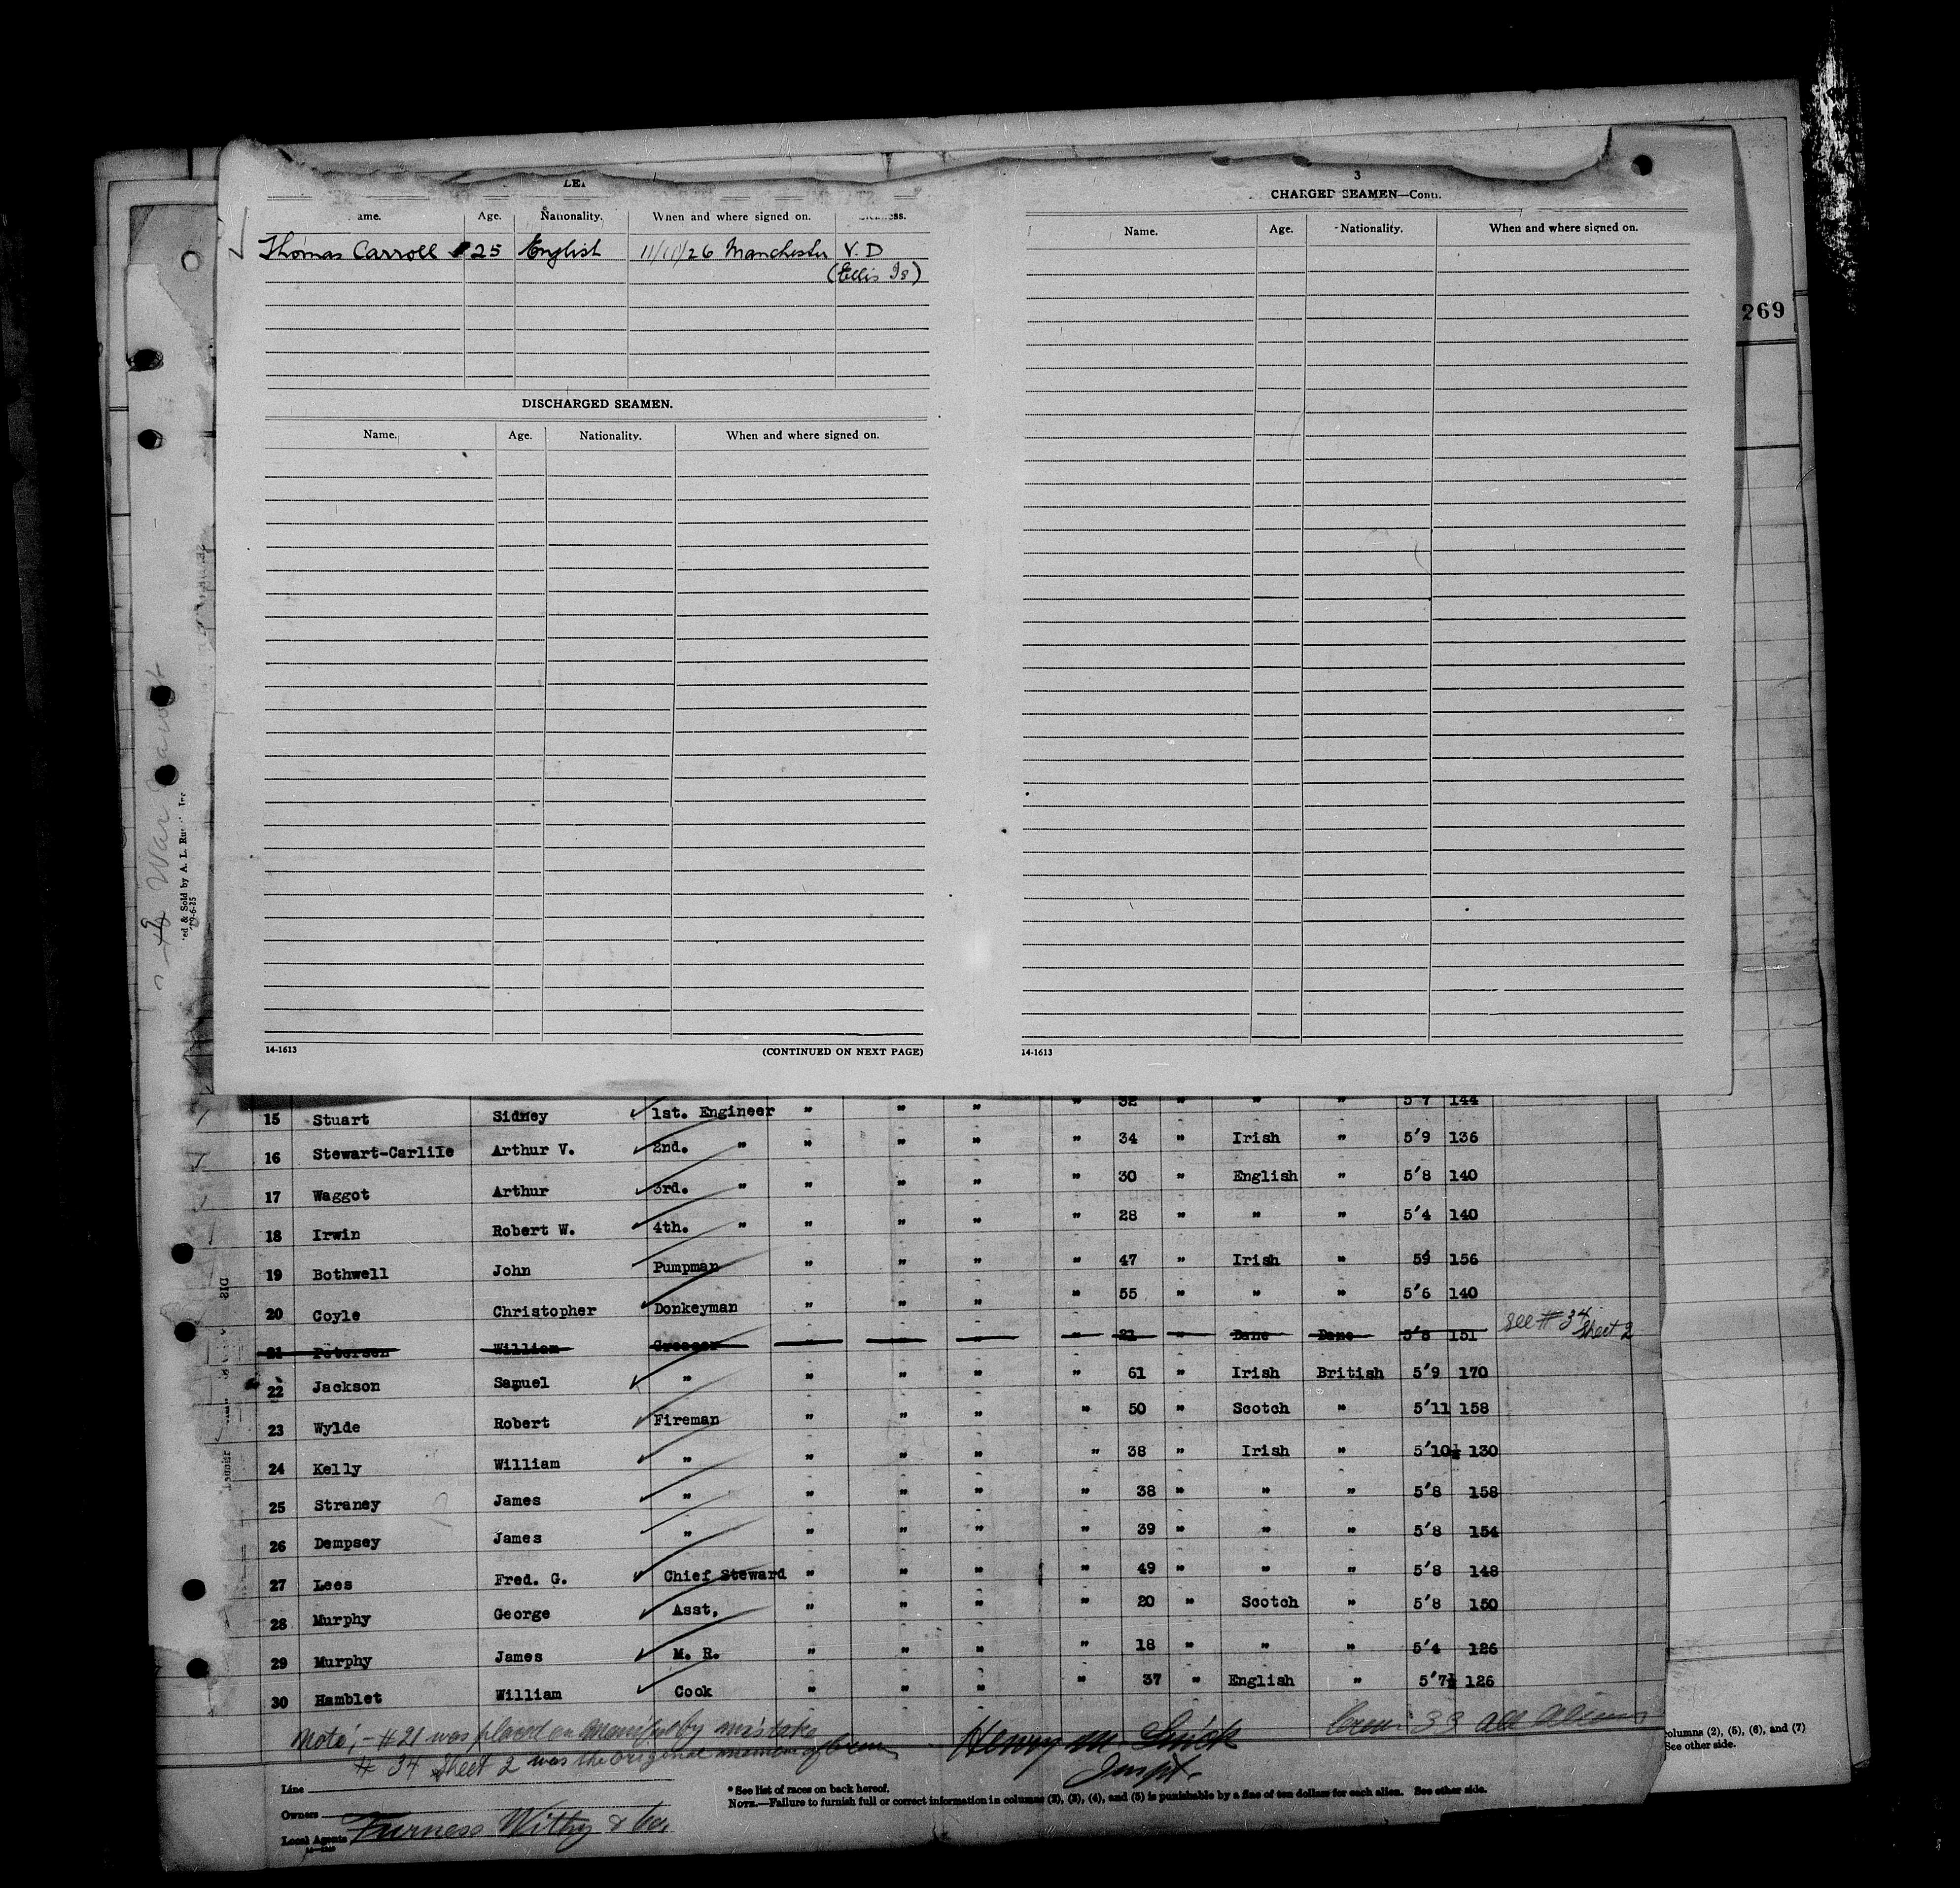 LEF
ame. Age. Nationality. When and where signed on. ess.
Thomas Carroll 25 English 11/11/26 Manchester V.D
(Ellis Is)
DISCHARGED SEAMEN.
Name. Age. Nationality. When and where signed on.
14-1613 (CONTINUED ON NEXT PAGE)
3
CHARGED SEAMEN—Contd.
Name. Age. Nationality. When and where signed on.
14-1613
269
ed & Sold by A. L. Ru
15 Stuart Sidney 1st. Engineer " " " " 32 " " " 5'7 144
16 Stewart-Carlile Arthur V. 2nd. " " " " " 34 " Irish " 5'9 136
17 Waggot Arthur 3rd. " " " " " 30 " English " 5'8 140
18 Irwin Robert W. 4th. " " " " " 28 " " " 5'4 140
19 Bothwell John Pumpman " " " " 47 " Irish " 5'9 156
20 Coyle Christopher Donkeyman " " " " 55 " " " 5'6 140
21 Petersen William Greaser " " " " 21 " Dane Dane 5'8 151 See # 34 Sheet 2
22 Jackson Samuel " " " " " 61 " Irish British 5'9 170
23 Wylde Robert Fireman " " " " 50 " Scotch " 5'11 158
24 Kelly William " " " " " 38 " Irish " 5'10½ 130
25 Straney James " " " " " 38 " " " 5'8 158
26 Dempsey James " " " " " 39 " " " 5'8 154
27 Lees Fred. G. Chief Steward " " " " 49 " " " 5'8 148
28 Murphy George Asst. " " " " 20 " Scotch " 5'8 150
29 Murphy James M. R. " " " " 18 " " " 5'4 126
30 Hamblet William Cook " " " " 37 " English " 5'7½ 126
Note:- #21 was placed on Manifest by mistake
# 34 Sheet 2 was the original member of crew
Henry M.
Inspt.
Crew 33 all Aliens
columns (2), (5), (6), and (7)
See other side.
Line
Owners
Local Agents Furness Withy & Co.
* See list of races on back hereof.
NOTE.—Failure to furnish full or correct information in columns (2), (3), (4), and (5) is punishable by a fine of ten dollars for each alien. See other side.